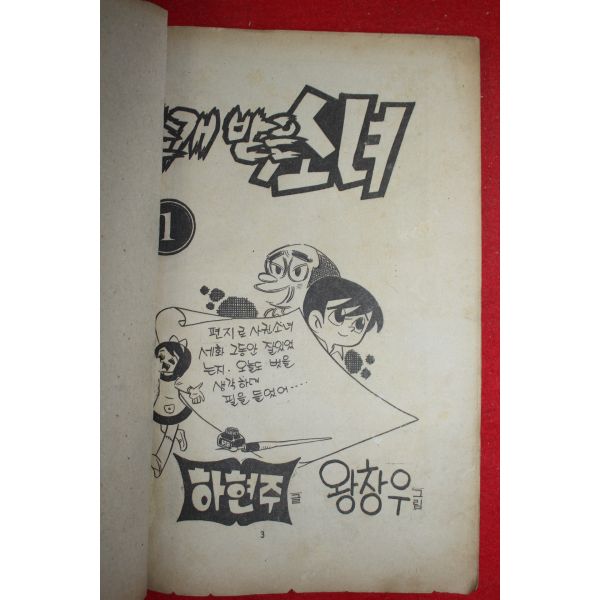 소녀
1
편지로 사귄소녀
세화 그동안 잘있었
는지. 오늘도 벗을
생각하며
필을 들었어....
하현주 글
왕창우 그림
3